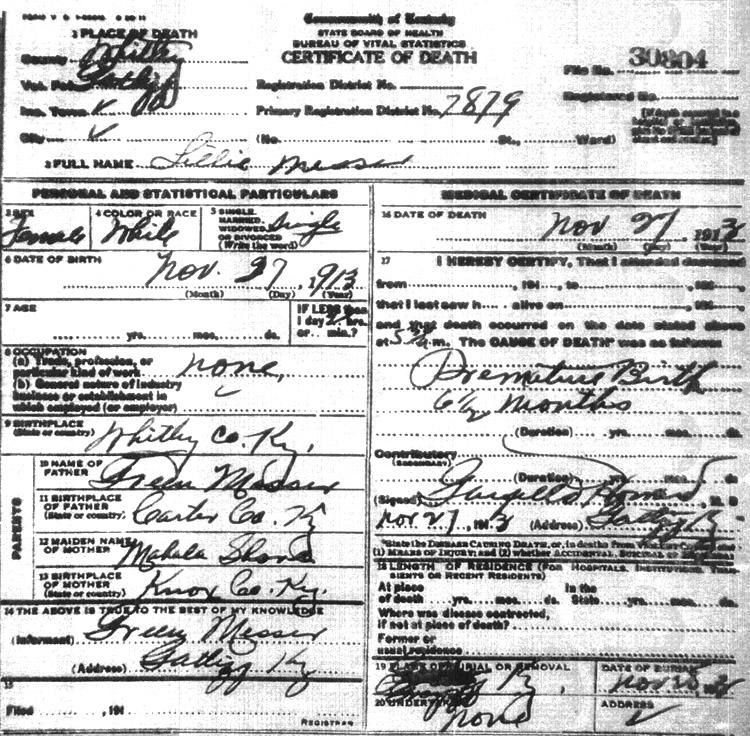 Commonwealth of Kentucky
STATE BOARD OF HEALTH
BUREAU OF VITAL STATISTICS
CERTIFICATE OF DEATH
1 PLACE OF DEATH
County Whitley
Vot. Pct. Gatliff
Inc. Town ✓
City ✓ (No. St., Ward)
Registration District No.
Primary Registration District No. 7879
File No. 30804
Registered No.
2 FULL NAME Lillie Messer
PERSONAL AND STATISTICAL PARTICULARS
3 SEX Female
4 COLOR OR RACE White
5 SINGLE, MARRIED, WIDOWED OR DIVORCED (Write the word) Single
6 DATE OF BIRTH
Nov. 27, 1913
(Month) (Day) (Year)
7 AGE
yrs. mos. ds.
IF LESS than
1 day hrs.
or min.?
8 OCCUPATION
(a) Trade, profession, or
particular kind of work none
(b) General nature of industry
business or establishment in
which employed (or employer) ✓
9 BIRTHPLACE
(State or country) Whitley Co. Ky.
PARENTS
10 NAME OF FATHER Green Messer
11 BIRTHPLACE OF FATHER (State or country) Carter Co. Ky
12 MAIDEN NAME OF MOTHER Mahala
13 BIRTHPLACE OF MOTHER (State or country) Knox Co. Ky.
14 THE ABOVE IS TRUE TO THE BEST OF MY KNOWLEDGE
(Informant) Green Messer
(Address) Gatliff Ky
15
Filed , 191
REGISTRAR
MEDICAL CERTIFICATE OF DEATH
16 DATE OF DEATH
Nov 27, 1913
(Month) (Day) (Year)
17 I HEREBY CERTIFY, That I attended deceased
from , 191 , to , 191
that I last saw h alive on , 191
and that death occurred on the date stated above
at m. The CAUSE OF DEATH* was as follows
Premature Birth
6½ months
(Duration) yrs. mos. ds
Contributory
(SECONDARY)
(Duration) yrs. mos. ds
(Signed)
Nov 27, 1913 (Address) Gatliff Ky
*State the DISEASE CAUSING DEATH, or, in deaths from
(1) MEANS OF INJURY; and (2) whether ACCIDENTAL, SUICIDAL or
18 LENGTH OF RESIDENCE (FOR HOSPITALS, INSTITUTIONS,
SIENTS OR RECENT RESIDENTS)
At place of death yrs. mos. ds. In the State yrs. mos. ds
Where was disease contracted,
if not at place of death?
Former or
usual residence
19 PLACE OF BURIAL OR REMOVAL
Ky,
DATE OF BURIAL
20 UNDERTAKER
none
ADDRESS
✓